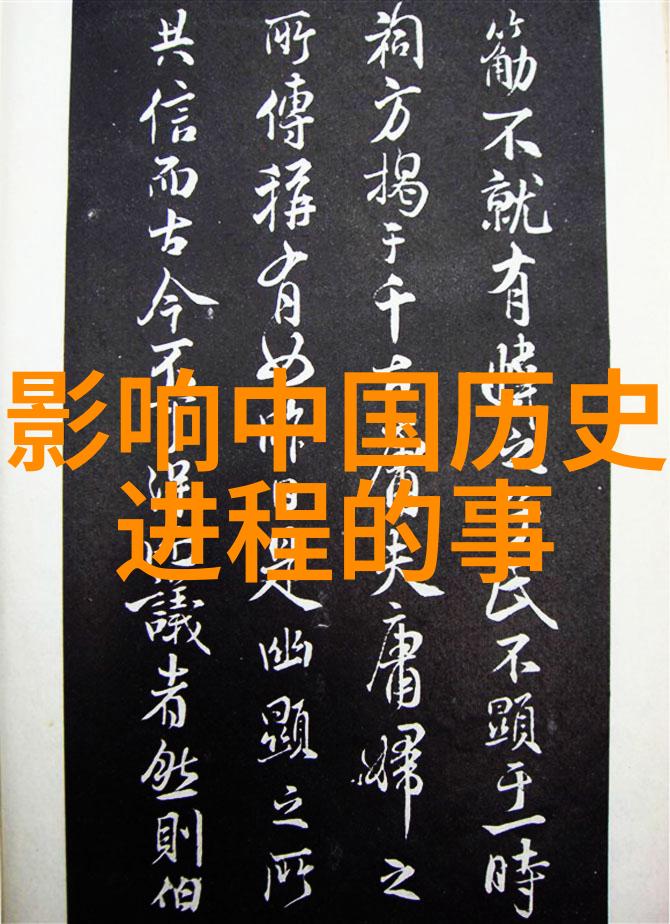 影响中国历史
进程的事
不就有之氏不顯于一時
祠方揭于千庸夫庸婦之
所傳稱有如昨日是幽顯之所
共信而古今不議者然則伯